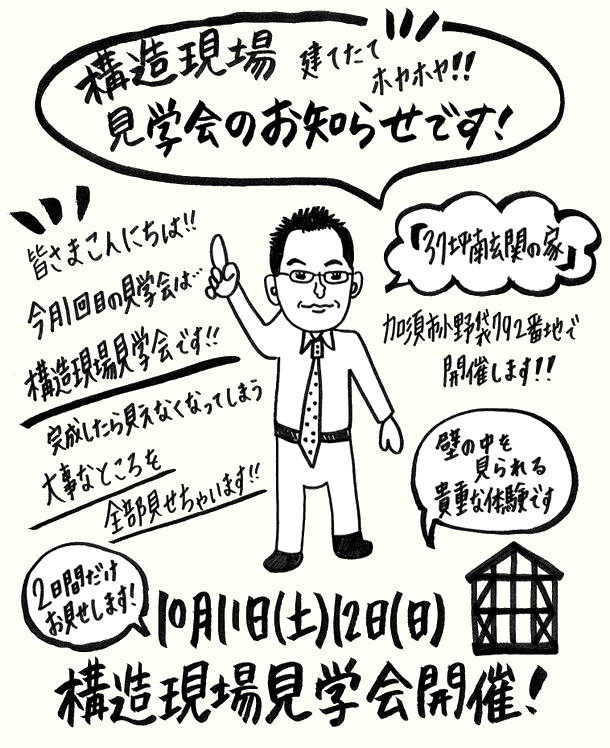 構造現場 建てたて
ホヤホヤ!!
見学会のお知らせです!
皆さまこんにちは!!
今月1回目の見学会は…
構造現場見学会です!!
完成したら見えなくなってしまう
大事なところを
全部見せちゃいます!!
「37坪南玄関の家」
加須市小野袋792番地で
開催します!!
壁の中を
見られる
貴重な体験です
2日間だけ
お見せします!
10月11日(土)12日(日)
構造現場見学会開催!